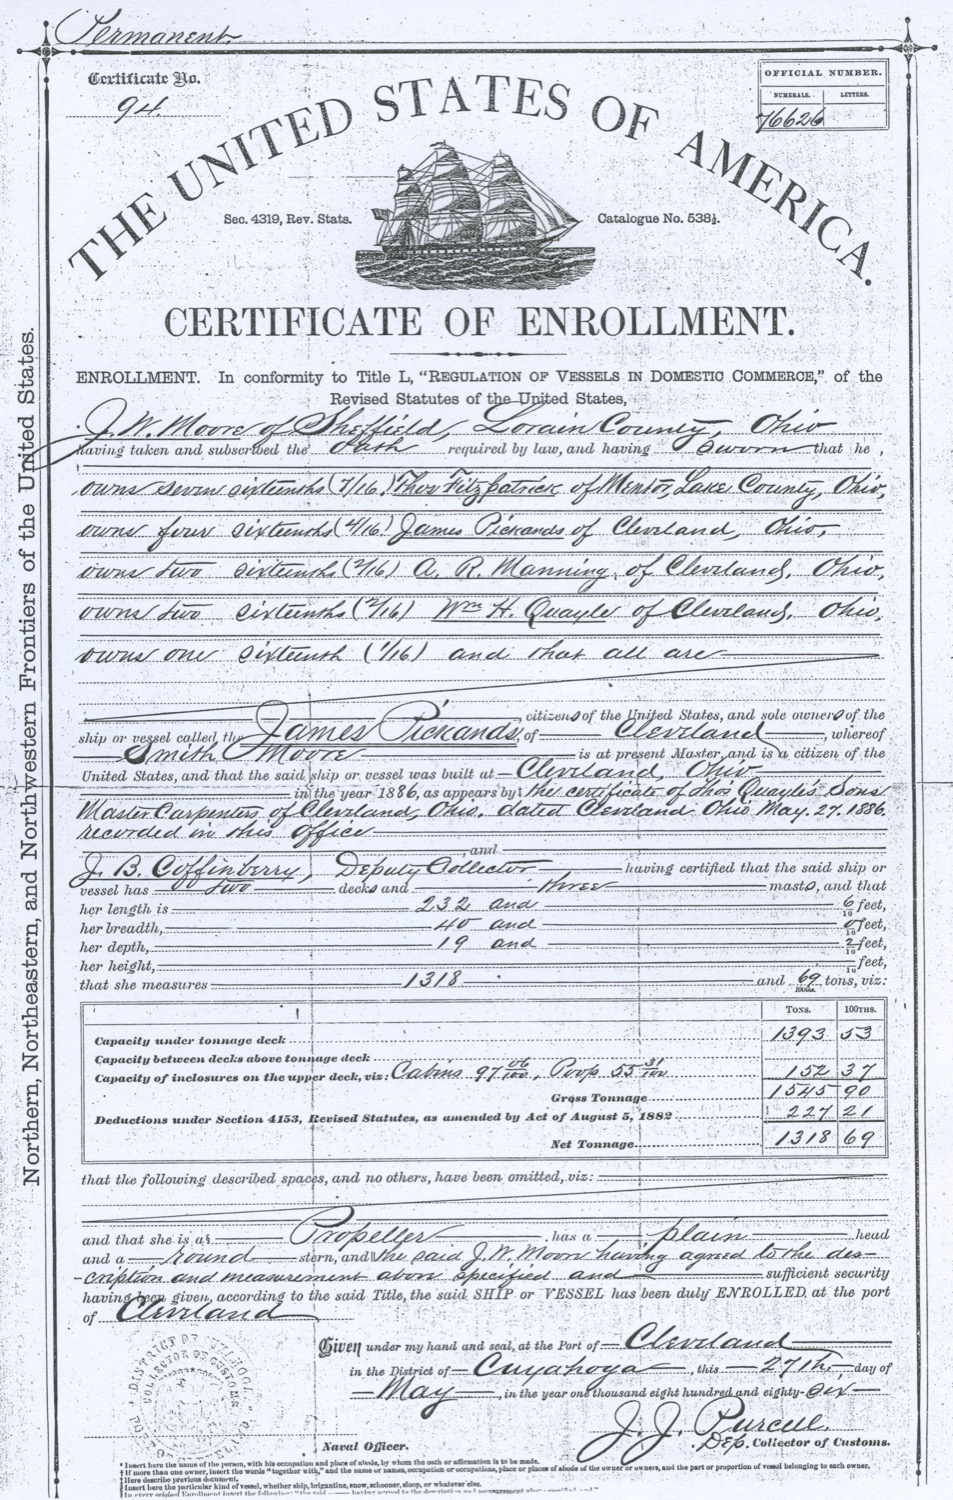 Permanent.
Certificate No.
94.
OFFICIAL NUMBER.
NUMERALS. LETTERS.
76626
THE UNITED STATES OF AMERICA.
Sec. 4319, Rev. Stats.
Catalogue No. 538½.
CERTIFICATE OF ENROLLMENT.
Northern, Northeastern, and Northwestern Frontiers of the United States.
ENROLLMENT. In conformity to Title L, "REGULATION OF VESSELS IN DOMESTIC COMMERCE," of the
Revised Statutes of the United States,
J. W. Moore of Sheffield, Lorain County, Ohio
having taken and subscribed the Oath required by law, and having sworn that he,
owns seven sixteenths (7/16) Thos Fitzpatrick of Mentor, Lake County, Ohio,
owns four sixteenths (4/16) James Pickands of Cleveland, Ohio,
owns two sixteenths (2/16) A. R. Manning, of Cleveland, Ohio,
owns two sixteenths (2/16) Wm H. Quayle of Cleveland, Ohio,
owns one sixteenth (1/16) and that all are
citizens of the United States, and sole owners of the
ship or vessel called the James Pickands, of Cleveland, whereof
Smith Moore is at present Master, and is a citizen of the
United States, and that the said ship or vessel was built at Cleveland, Ohio
in the year 1886, as appears by the certificate of Thos Quayle's Sons
Master Carpenters of Cleveland, Ohio, dated Cleveland Ohio May. 27. 1886.
recorded in this office
, and
J. B. Coffinberry, Deputy Collector having certified that the said ship or
vessel has two decks and three masts, and that
her length is 232 and 6/10 feet,
her breadth, 40 and 0/10 feet,
her depth, 19 and 2/10 feet,
her height, /10 feet,
that she measures 1318 and 69/100ths. tons, viz:
TONS. 100THS.
Capacity under tonnage deck 1393 53
Capacity between decks above tonnage deck
Capacity of inclosures on the upper deck, viz: Cabins 97 06/100, Poop 55 31/100 152 37
Gross Tonnage 1545 90
Deductions under Section 4153, Revised Statutes, as amended by Act of August 5, 1882 227 21
Net Tonnage 1318 69
that the following described spaces, and no others, have been omitted, viz:
and that she is a§ Propeller, has a plain head
and a round stern, and the said J. W. Moore having agreed to the des-
-cription and measurement above specified and sufficient security
having been given, according to the said Title, the said SHIP or VESSEL has been duly ENROLLED at the port
of Cleveland
Given under my hand and seal, at the Port of Cleveland
in the District of Cuyahoga, this 27th day of
May, in the year one thousand eight hundred and eighty-six
J. J. Purcell.
Naval Officer.
Dep. Collector of Customs.
* Insert here the name of the person, with his occupation and place of abode, by whom the oath or affirmation is to be made.
† If more than one owner, insert the words "together with," and the name or names, occupation or occupations, place or places of abode of the owner or owners, and the part or proportion of vessel belonging to each owner.
‡ Here describe previous document.
Insert here the particular kind of vessel, whether ship, brigantine, snow, schooner, sloop, or whatever else.